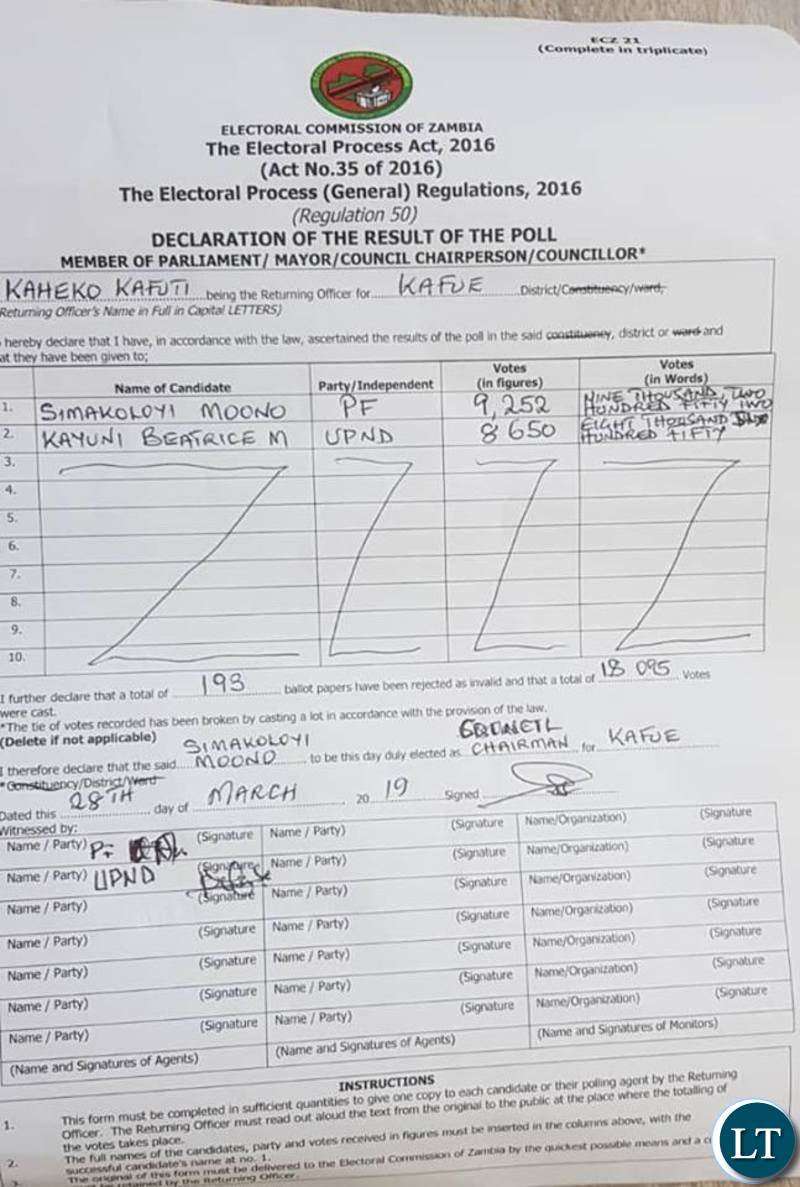 ECZ 21
(Complete in triplicate)
ELECTORAL COMMISSION OF ZAMBIA
ELECTORAL COMMISSION OF ZAMBIA
The Electoral Process Act, 2016
(Act No.35 of 2016)
The Electoral Process (General) Regulations, 2016
(Regulation 50)
DECLARATION OF THE RESULT OF THE POLL
MEMBER OF PARLIAMENT/ MAYOR/COUNCIL CHAIRPERSON/COUNCILLOR*
KAHEKO KAFUTI being the Returning Officer for KAFUE District/Constituency/ward,
Returning Officer's Name in Full in Capital LETTERS)
hereby declare that I have, in accordance with the law, ascertained the results of the poll in the said constituency, district or ward and
at they have been given to;
Name of Candidate Party/Independent Votes (in figures) Votes (in Words)
1. SIMAKOLOYI MOONO PF 9,252 NINE THOUSAND, TWO HUNDRED FIFTY TWO
2. KAYUNI BEATRICE M UPND 8 650 EIGHT THOUSAND HUNDRED FIFTY
3.
4.
5.
6.
7.
8.
9.
10.
I further declare that a total of 193 ballot papers have been rejected as invalid and that a total of 18 095 Votes
were cast.
*The tie of votes recorded has been broken by casting a lot in accordance with the provision of the law.
(Delete if not applicable)
I therefore declare that the said SIMAKOLOYI MOONO to be this day duly elected as COUNCIL CHAIRMAN for KAFUE
*Constituency/District/Ward
Dated this 28TH day of MARCH 20 19 Signed
Witnessed by:
Name / Party) PF (Signature Name / Party) (Signature Name/Organization) (Signature
Name / Party) UPND (Signature Name / Party) (Signature Name/Organization) (Signature
Name / Party) (Signature Name / Party) (Signature Name/Organization) (Signature
Name / Party) (Signature Name / Party) (Signature Name/Organization) (Signature
Name / Party) (Signature Name / Party) (Signature Name/Organization) (Signature
Name / Party) (Signature Name / Party) (Signature Name/Organization) (Signature
Name / Party) (Signature Name / Party) (Signature Name/Organization) (Signature
(Name and Signatures of Agents) (Name and Signatures of Agents) (Name and Signatures of Monitors)
INSTRUCTIONS
1. This form must be completed in sufficient quantities to give one copy to each candidate or their polling agent by the Returning
Officer. The Returning Officer must read out aloud the text from the original to the public at the place where the totalling of
the votes takes place.
2. The full names of the candidates, party and votes received in figures must be inserted in the columns above, with the
successful candidate's name at no. 1.
3. The original of this form must be delivered to the Electoral Commission of Zambia by the quickest possible means and a
be retained by the Returning Officer.
LT